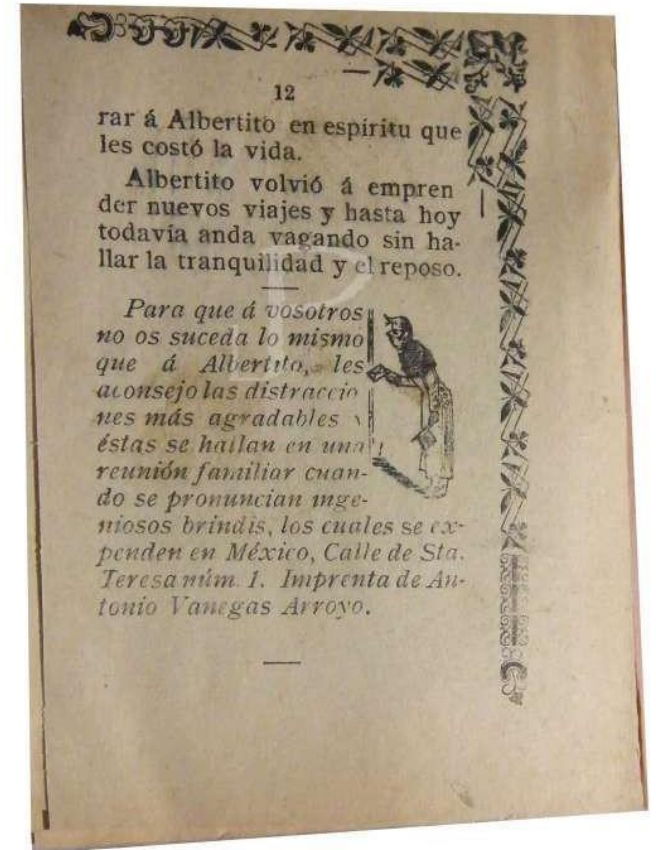 12
rar á Albertito en espíritu que
les costó la vida.
Albertito volvió á empren
der nuevos viajes y hasta hoy
todavía anda vagando sin ha-
llar la tranquilidad y el reposo.
Para que á vosotros
no os suceda lo mismo
que á Albertito, les
aconsejo las distraccio
nes más agradables y
éstas se hallan en una
reunión familiar cuan-
do se pronuncian inge-
niosos brindis, los cuales se ex-
penden en México, Calle de Sta.
Teresa núm. 1. Imprenta de An-
tonio Vanegas Arroyo.